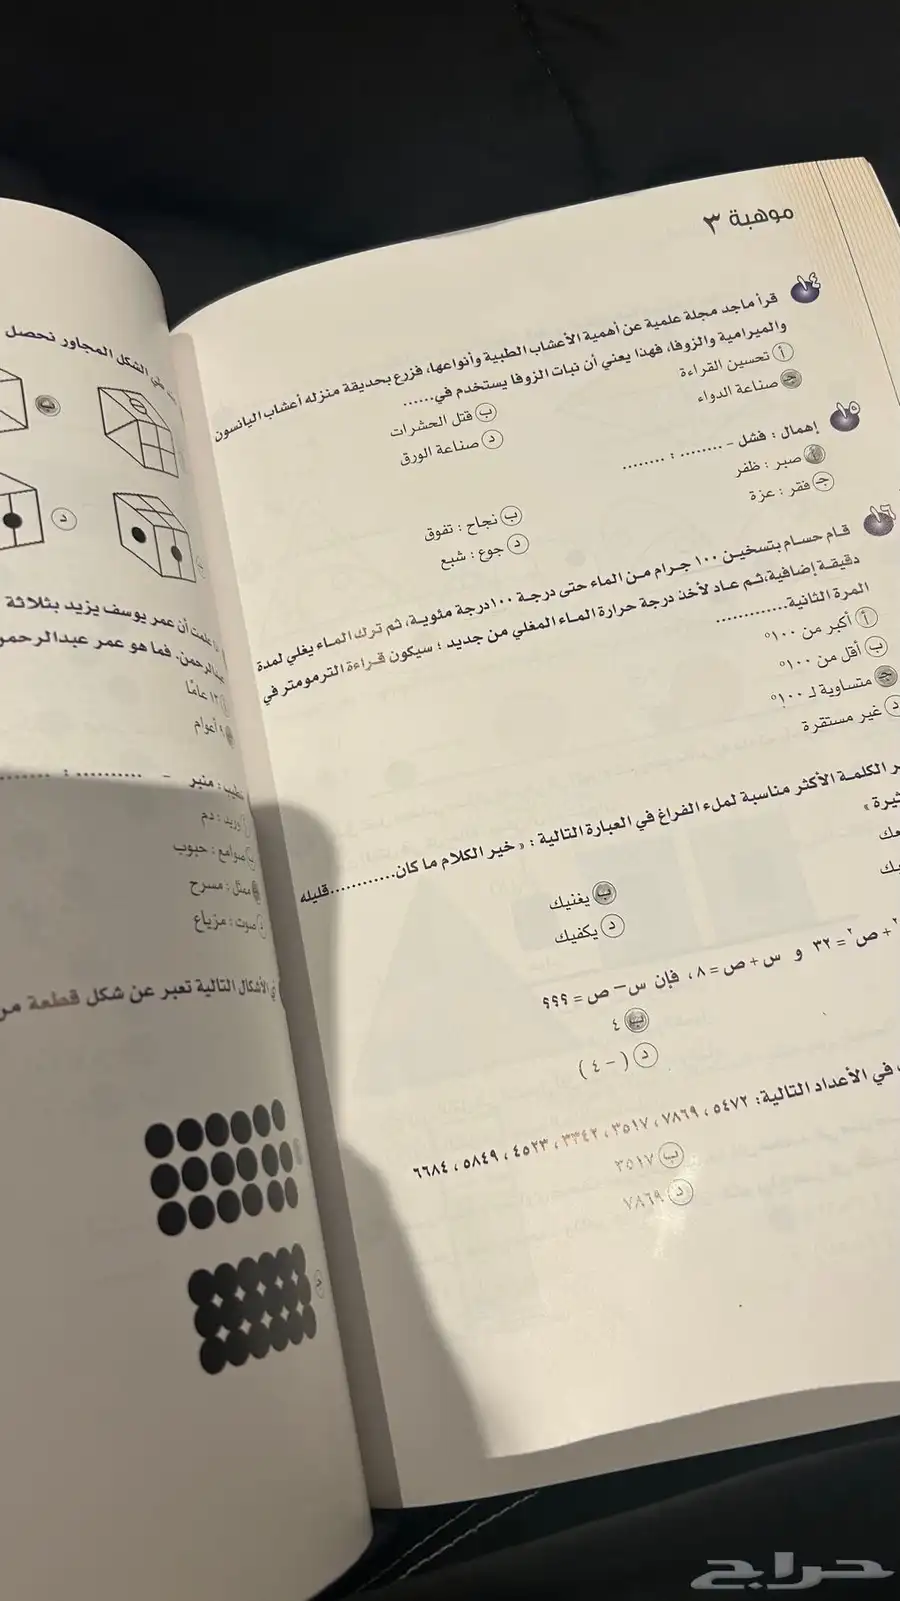 موهبة ٣
١٤
قرأ ماجد مجلة علمية عن أهمية الأعشاب الطبية وأنواعها، فزرع بحديقة منزله أعشاب اليانسون
والميرامية والزوفا، فهذا يعني أن نبات الزوفا يستخدم في......
أ تحسين القراءة
ب قتل الحشرات
ج صناعة الدواء
د صناعة الورق
١٥
إهمال : فشل - ........ : ........
أ صبر : ظفر
ب نجاح : تفوق
ج فقر : عزة
د جوع : شبع
١٦
قام حسام بتسخين ١٠٠ جرام من الماء حتى درجة ١٠٠ درجة مئوية، ثم ترك الماء يغلي لمدة
دقيقة إضافية، ثم عاد لأخذ درجة حرارة الماء المغلي من جديد ؛ سيكون قراءة الترمومتر في
المرة الثانية.............
أ أكبر من ١٠٠°
ب أقل من ١٠٠°
ج متساوية لـ ١٠٠°
د غير مستقرة
الكلمة الأكثر مناسبة لملء الفراغ في العبارة التالية : « خير الكلام ما كان............قليله
ب يغنيك
د يكفيك
+ ص٢ = ٣٢ و س + ص = ٨، فإن س – ص = ؟؟؟
ب ٤
د ( - ٤ )
في الأعداد التالية: ٥٤٧٢ ، ٧٨٦٩ ، ٣٥١٧ ، ٣٣٤٢ ، ٤٥٢٣ ، ٥٨٤٩ ، ٦٦٨٤
ب ٣٥١٧
د ٧٨٦٩
الشكل المجاور نحصل
ب
د
علمت أن عمر يوسف يزيد بثلاثة
فما هو عمر عبدالرحمن
١٢ عامًا
٩ أعوام
خطيب : منبر - .......... : ........
وريد : دم
صوامع : حبوب
ممثل : مسرح
صوت : مزياع
الأشكال التالية تعبر عن شكل قطعة من
د
حراج